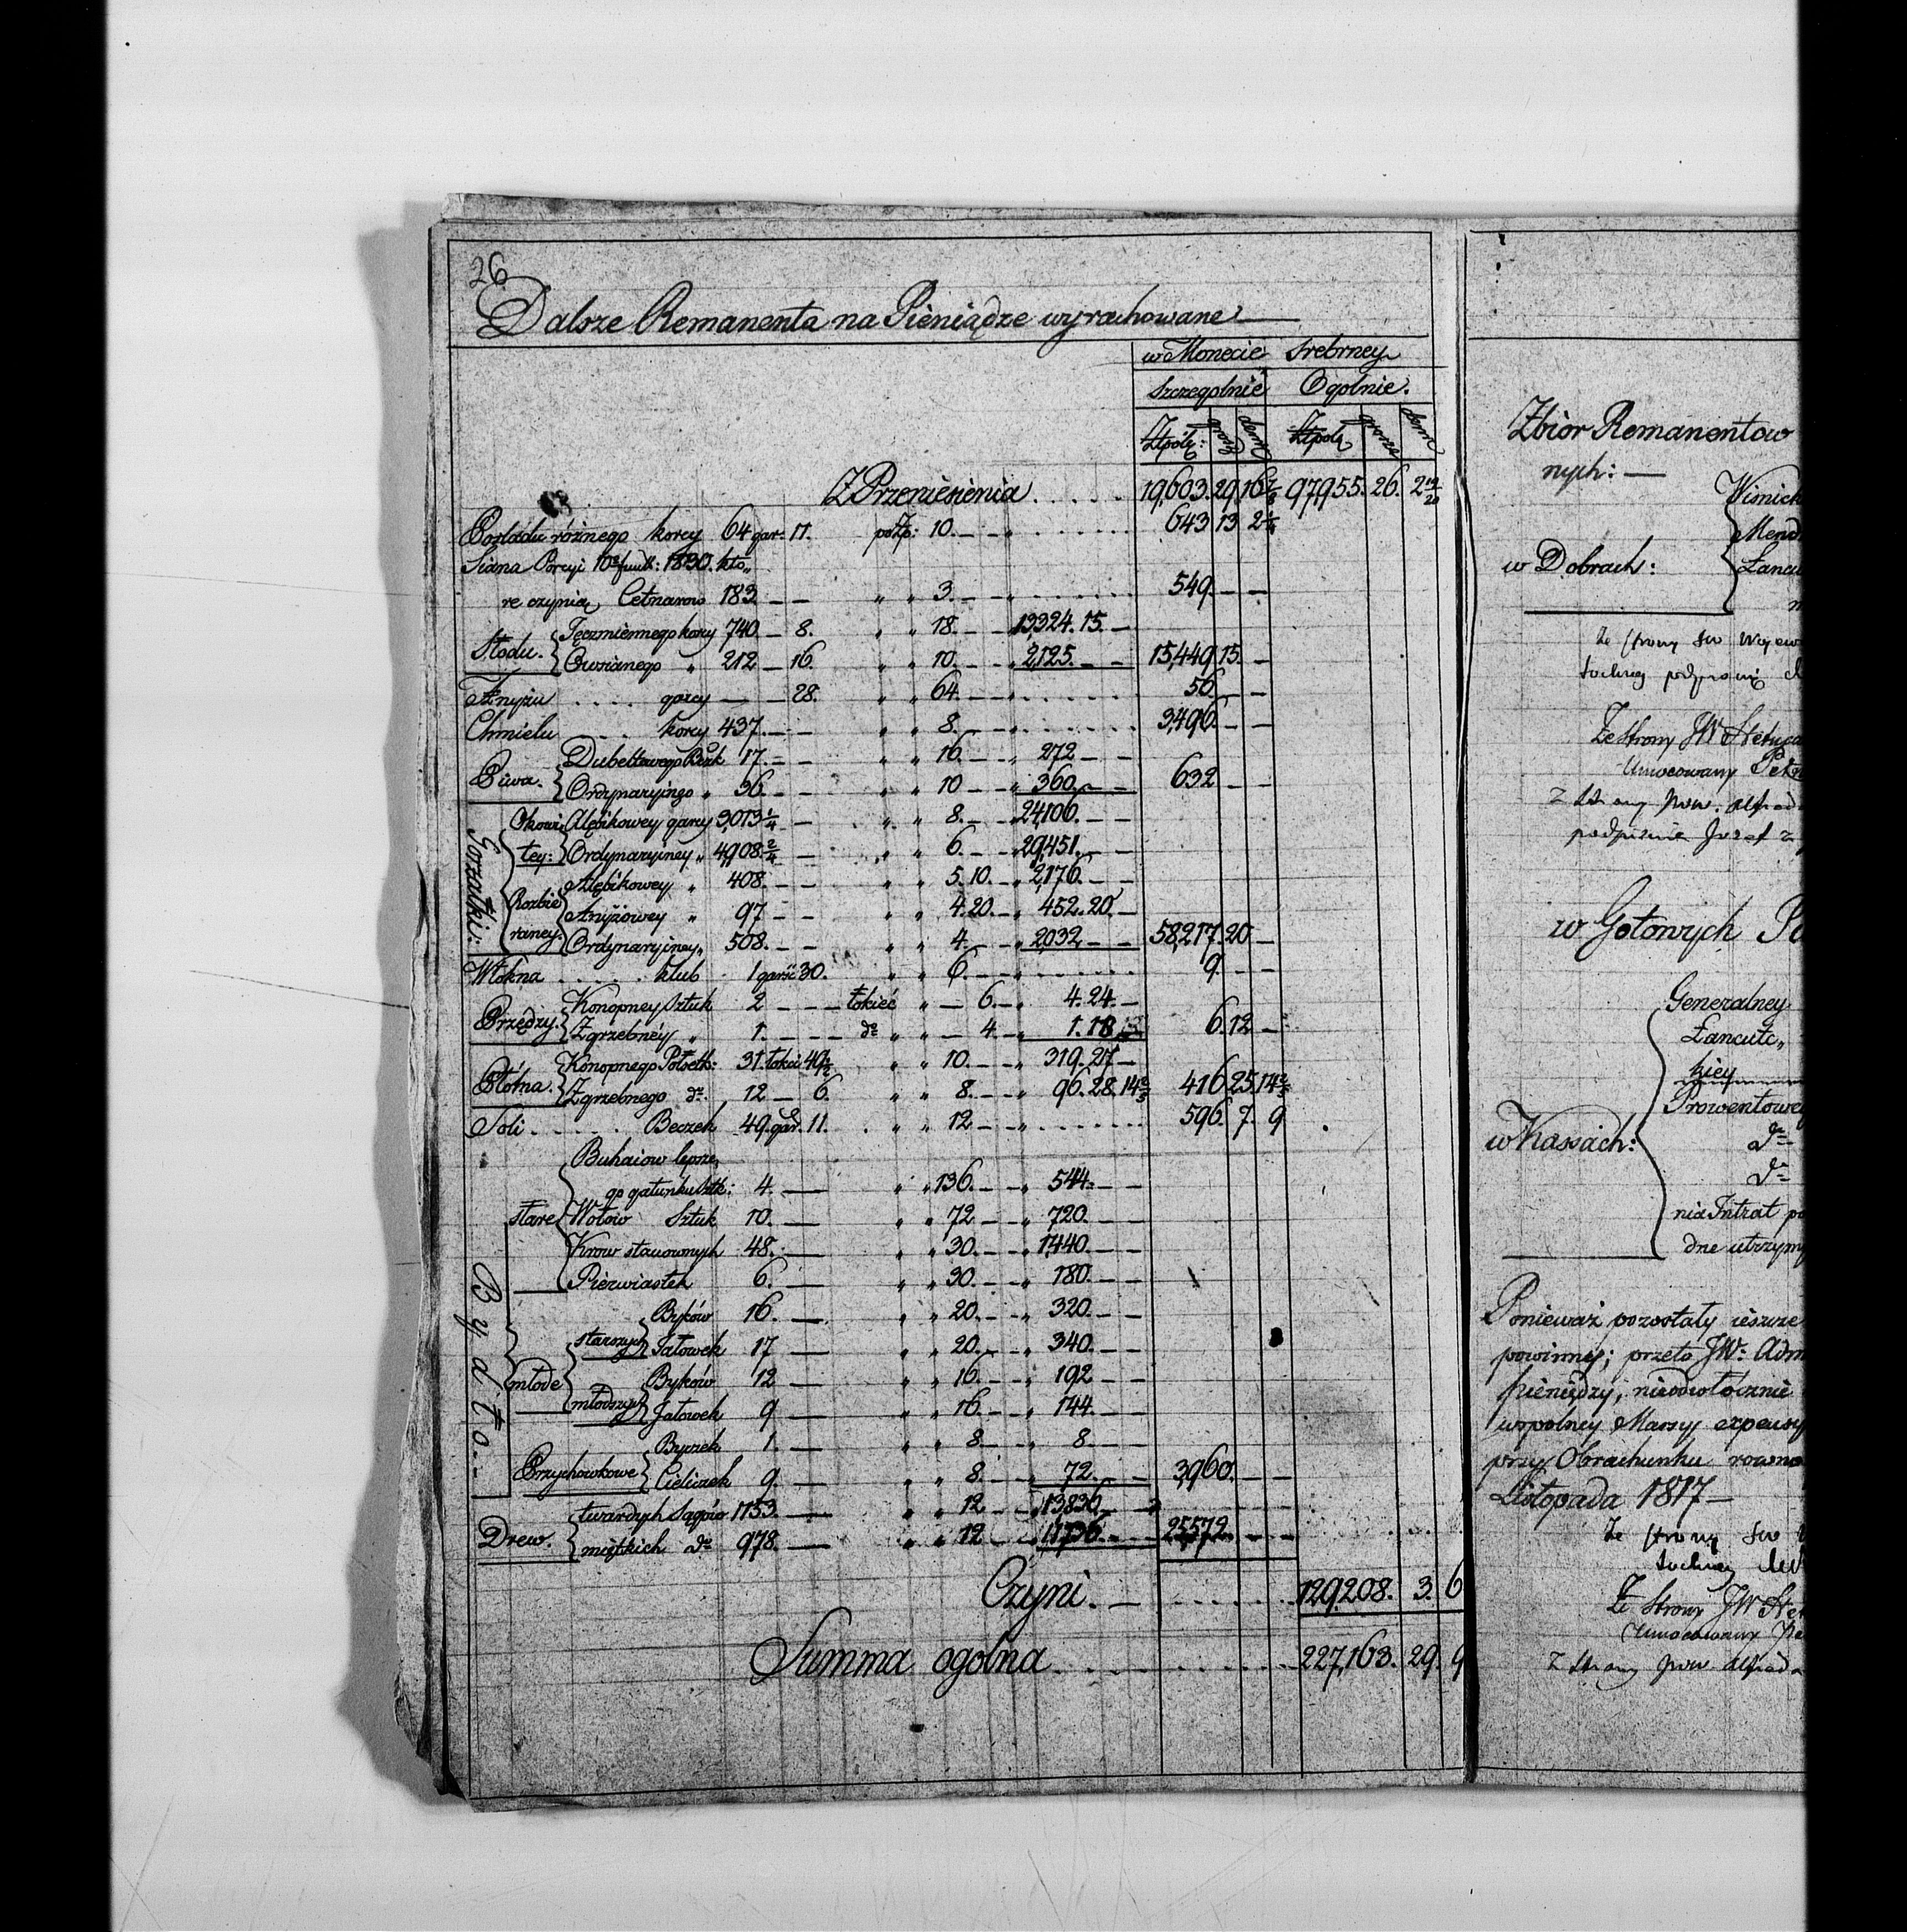 26
Dalsze Remanenta na Pieniądze wyrachowane
w Monecie srebrney
szczegolnie Ogolnie.
Złpolz: grosz denar Złpolz grosza denar
Z Przeniesienia . . . . . 19,603. 29 16 97,955. 26. 2 19/20
Pośladu różnego korcy 64 gar: 11. po Złp: 10. — — " . . . . . . 643 13 2 1/4
Siana Porcyi 10 funt: 1830. któ„
re czynią Cetnarow 183 — — " " 3. — — " . . . . . . 549. — —
Słodu. Jęczmiennego korcy 740. — 8. " " 18. — — " 13324. 15. —
Owsianego " 212 — 16. " " 10. — — " 2,125. — — 15,449. 15. —
Anyżu . . . . garcy — — 28. " " 64. — — " . . . . . . 56. — —
Chmielu . . . . korcy 437. — — " " 8. — — " . . . . . . 3,496. — —
Piwa. Dubeltowego Beczk 17. — — " " 16. — — " 272 — —
Ordynaryinego " 36. — — " " 10 — — " 360. — — 632 — —
Gorzałki: Okowi Alębikowey garcy 3,013 1/4 — " " 8. — — " 24106. — —
tey: Ordynaryiney " 4,908. 2/4 — " " 6. — — " 29,451. — —
Rozbie Alębikowey " 408. — — " " 5. 10. — " 2,176. — —
Anyżowey " 97 — — " " 4. 20. — " 452. 20. —
raney. Ordynaryiney " 508. — — " " 4. — — " 2032 — — 58,217. 20 —
Włókna . . . . . klub 1 garść 30. " " 6. — — " . . . . . . 9. — —
Przędzy. Konopney Sztuk 2 — — — łokieć " — 6. — " 4. 24. —
Zgrzebney " 1. — — — do " " — 4 — " 1. 18 6. 12 —
Płótna. Konopnego Półsetk: 31. łokci 49 1/2 " " 10. — — " 319. 27 —
Zgrzebnego do. 12 — 6. " " 8. — — " 96. 28. 14 2/5 416 25. 14 2/5
Soli . . . . . . Beczek 49. gar. 11. " " 12 — — " . . . . . . 596. 7. 9
Bydło. Buhaiow lepsze„
go gatunku sztk: 4. — " " 136. — — " 544. — —
stare Wołow Sztuk 10. — " " 72 — — " 720. — —
Krow stanownych 48. — " " 30. — — " 1,440. — —
Pierwiastek 6. — " " 30. — — " 180. — —
Byków 16. — " " 20. — — " 320. — —
starszych Jałowek 17 — " " 20. — — " 340. — —
młode Byków 12 — " " 16. — — " 192 — —
młodszych Jałowek 9 — " " 16. — — " 144. — —
Byczek 1. — " " 8 — — " 8 — —
Przychowkowe Cieliczek 9. — " " 8. — — " 72. — — 3,960. — —
Drew. twardych Sągów 1153. — " " 12 — — " 13836 — —
miętkich do 978. — " " 12 — — " 11,736. — — 25,572. — —
Czyni. — . . . . . . 129,208. 3. 6
Summa ogolna . . . . . . . . . . . 227,163. 29. 9
Zbior Remanentow
nych: —
w Dobrach:
Łancu
w Gotowych
w Kassach:
Generalney
Łancutc„
kiey
Prowentowey
do
do
nia Intrat
dne utrzym
Ponieważ pozostały ieszcze
powinney; przeto JW: Adm
pieniędzy, nieodwłocznie
wspolney Massy expensy
przy Obrachunku rowno
Listopada 1817 —
Ze strony
Ze Strony JW